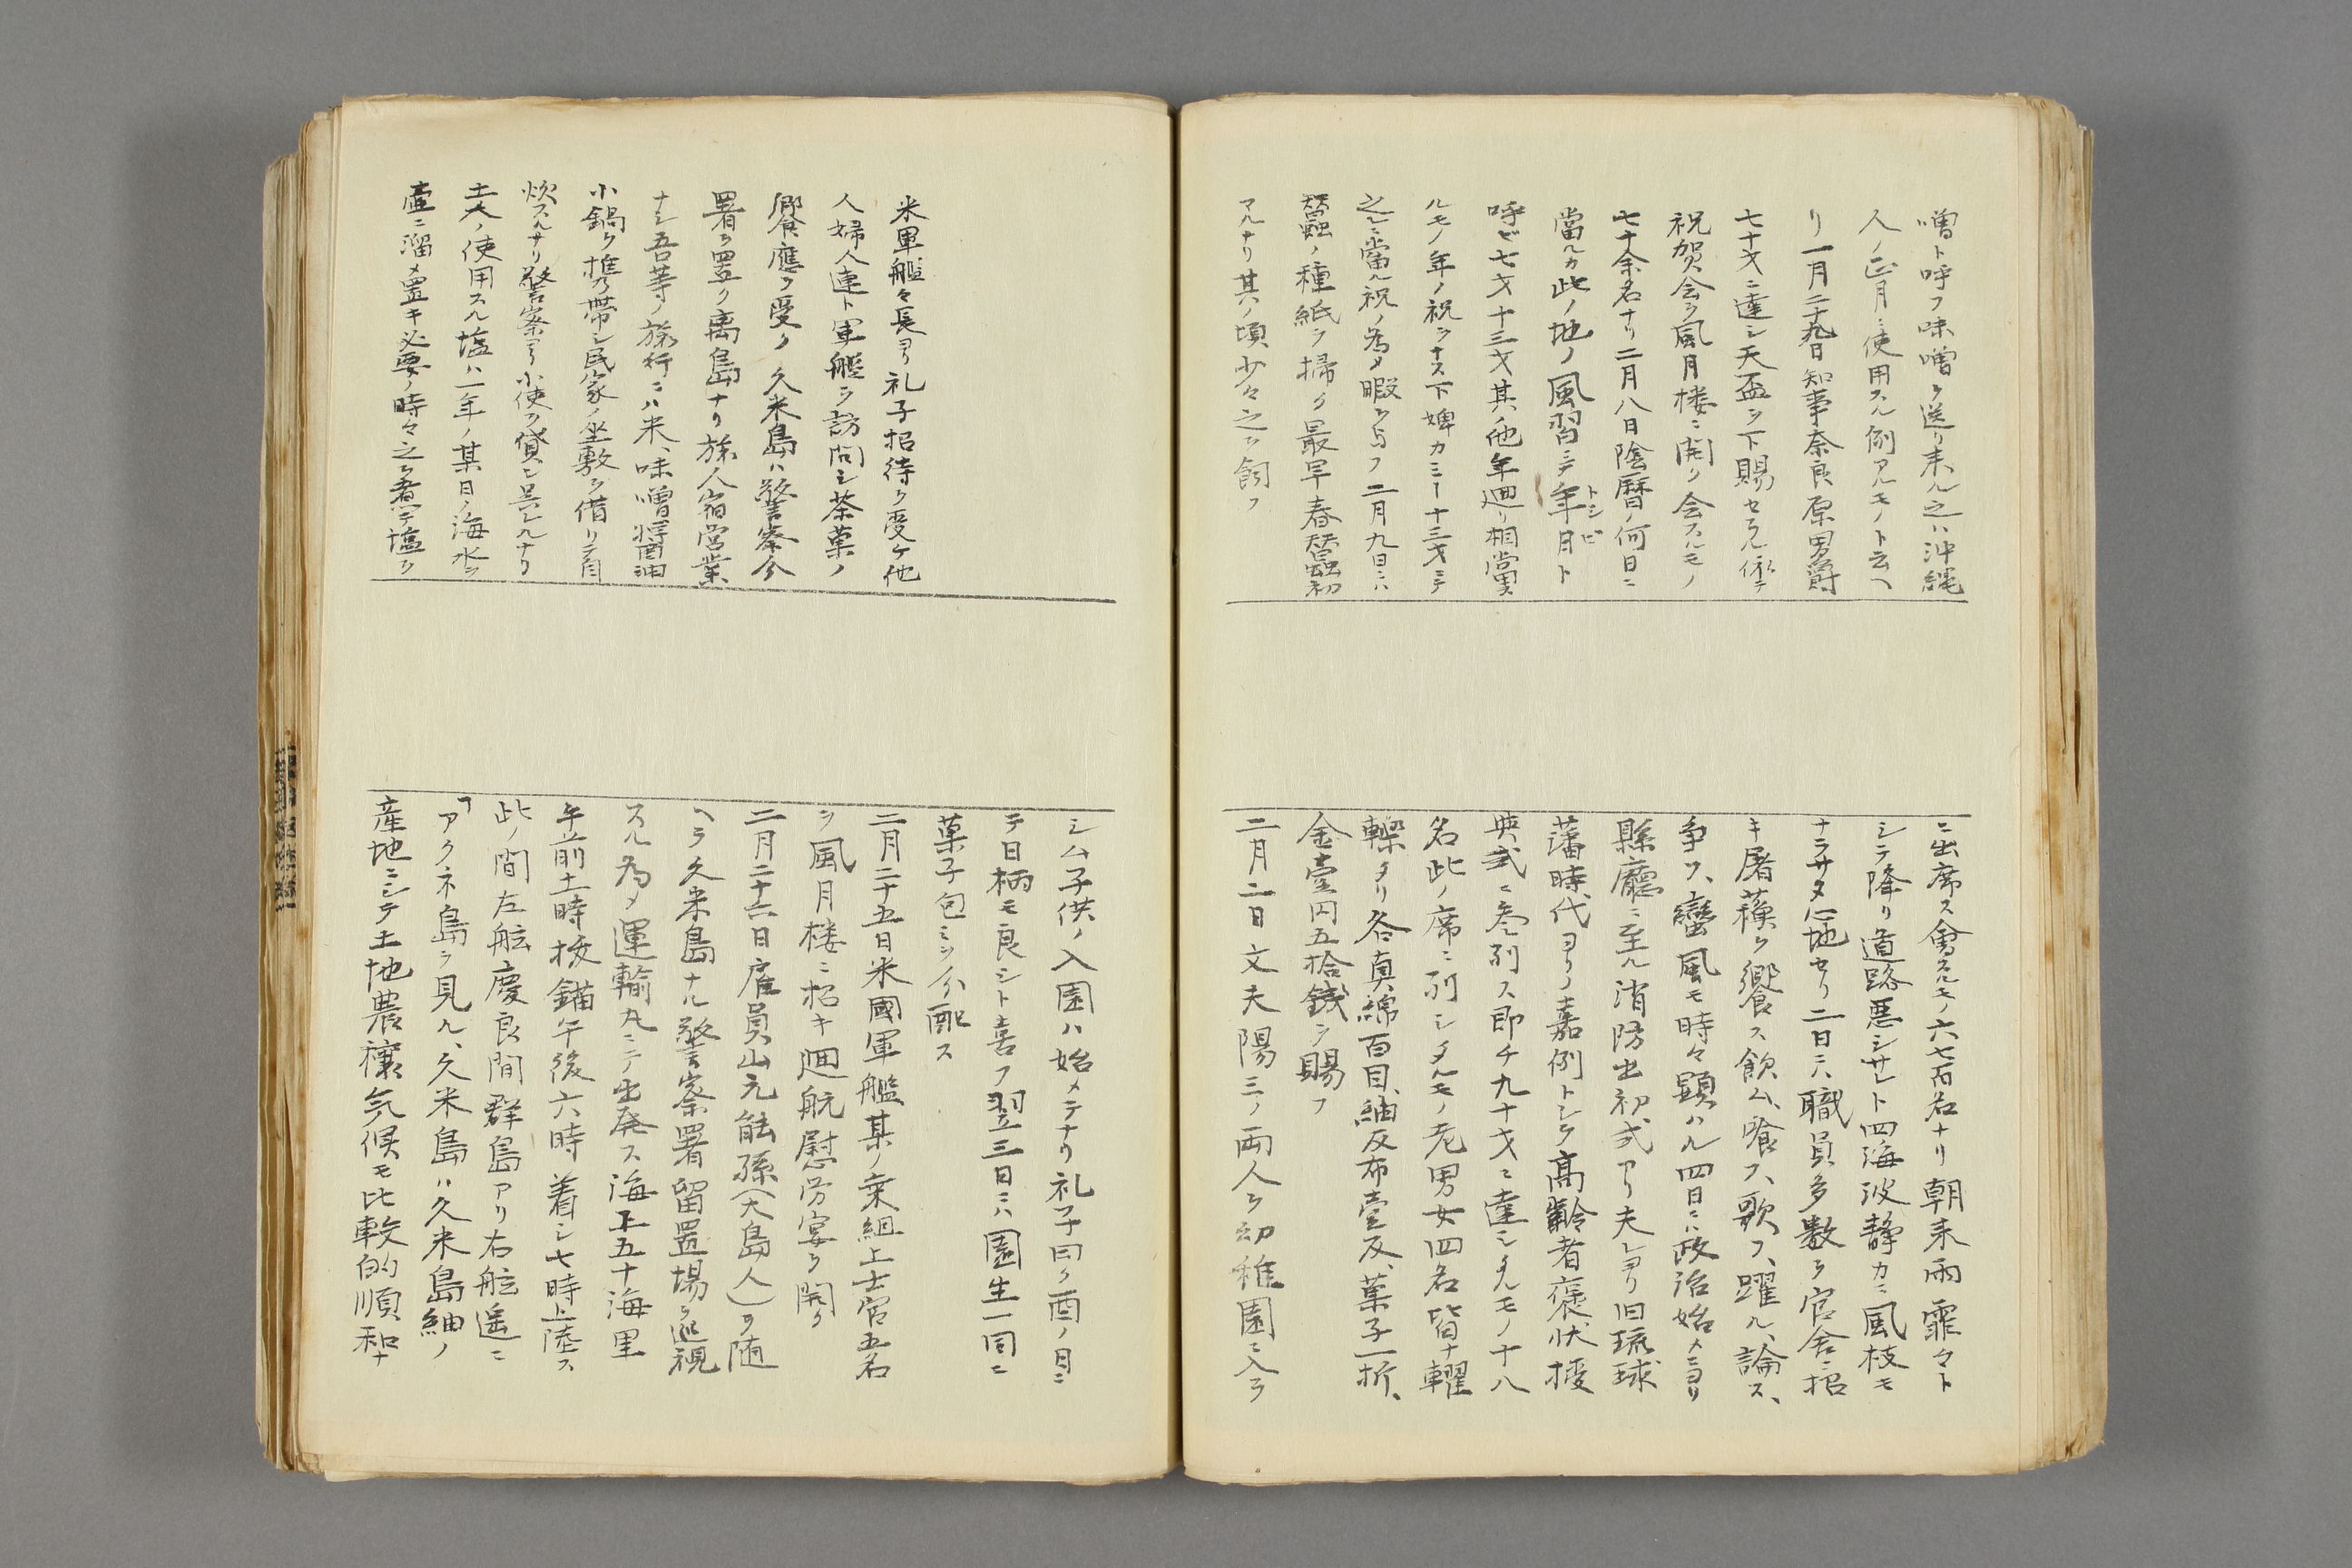 噌ト呼フ味噌ヲ送リ来ル之ハ沖縄
人ノ正月ニ使用スル例アルモノト云ヘ
リ一月二十九日知事奈良原男爵
七十才ニ達シ天盃ヲ下賜セラル依テ
祝賀会ヲ風月楼ニ開ク会スルモノ
七十余名ナリ二月八日陰暦ノ何日ニ
當ルカ此ノ地ノ風習ニテ年日ト
トシビ
呼ビ七才十三才其ノ他年廻リ相當ス
ルモノ年ノ祝ヲナス下婢カミー十三才ニテ
之レニ當ル祝ノ為メ暇ヲ与フ二月九日ニハ
蠶ノ種紙ヲ掃ク最早春蠶初
マルナリ其ノ頃少々之ヲ飼フ
ニ出席ス會スルモノ六七百名ナリ朝来雨霏々ト
シテ降リ道路悪シサレト四海波静カニ風枝モ
ナラサヌ心地セリ二日ニハ職員多数ヲ官舎ニ招
キ屠蘇ヲ饗ス飲ム、喰フ、歌フ、躍ル、論ス、
争フ、蠻風モ時々顕ハル四日ニハ政治始メニヨリ
縣廳ニ至ル消防出初式アリ夫レヨリ旧琉球
藩時代ヨリノ嘉例トシテ高齢者褒状授
典式ニ参列ス即チ九十才ニ達シタルモノ十八
名此ノ席ニ列シタルモノ老男女四名皆ナ矍
鑠タリ各真綿百目、紬反布壹反、菓子一折、
金壹円五拾銭ヲ賜フ
二月二日文夫陽三ノ両人ヲ幼稚園ニ入ラ
米軍艦々長ヨリ礼子招待ヲ受ケ他
人婦人連ト軍艦ヲ訪問シ茶菓ノ
饗應ヲ受ク久米島ハ警察分
署ヲ置ク離島ナリ旅人宿営業
ナシ吾等ノ旅行ニハ米、味噌醤油
小鍋ヲ携帯シ民家ノ坐敷ヲ借リテ自
炊スルナリ警察ヨリ小使ヲ貸シ呉レルナリ
土人ノ使用スル塩ハ一年ノ某日ノ海水ヲ
壷ニ溜メ置キ必要ノ時々之ヲ煮テ塩ヲ
シム子供ノ入園ハ始メテナリ礼子曰ク酉ノ日ニ
テ日柄モ良シト喜フ翌三日ニハ園生一同ニ
菓子包ミヲ分配ス
二月二十五日米國軍艦某ノ乗組上士官五名
ヲ風月楼ニ招キ廻航慰労宴ヲ開ク
二月二十六日雇員山元能孫(大島人)ヲ随
ヘテ久米島ナル警察署留置場ヲ巡視
スル為メ運輸丸ニテ出発ス海上五十海里
午前十一時抜錨午後六時着シ七時上陸ス
此ノ間左舷慶良間群島アリ右舷遥ニ
「アクネ島ヲ見ル、久米島ハ久米島紬ノ
産地ニシテ土地農穣気候モ比較的順和ナ